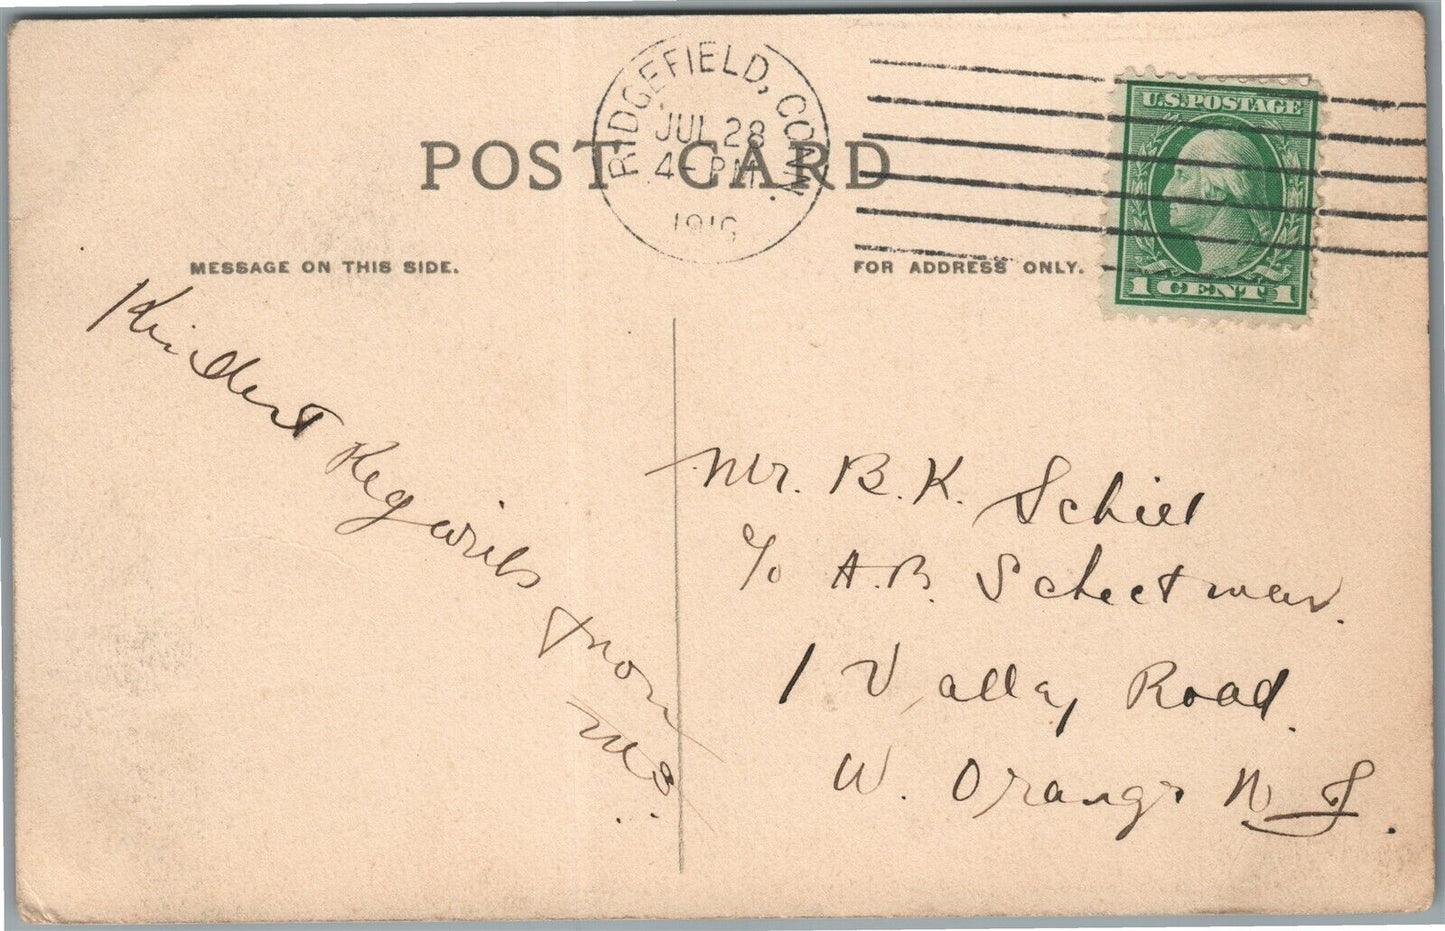 RIDGEFIELD, CONN.
JUL 28
4- PM
1916
U.S. POSTAGE
1 CENT 1
POST CARD
MESSAGE ON THIS SIDE.
FOR ADDRESS ONLY.
Kindest Regards from
Mr. B. K. Schiel
c/o A. B. Schectman.
1 Valley Road.
W. Orange N J.